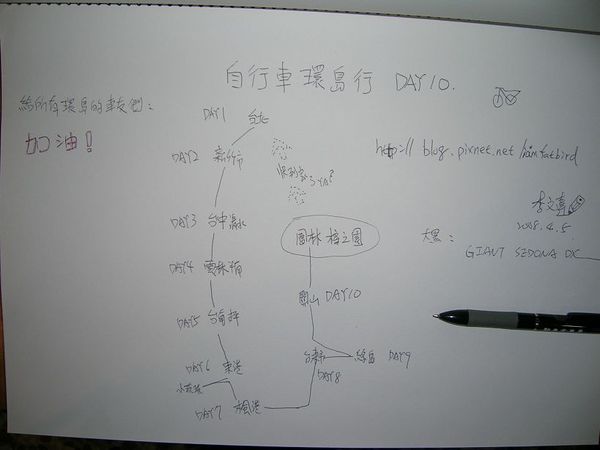 自行車環島行 DAY10.
給所有環島的車友們:
加油!
DAY1 台北
DAY2 新竹市
DAY3 台中清水
DAY4 雲林
DAY5 台南
DAY6 東港
小琉球
DAY7 楓港
台東市
DAY8
綠島 DAY9
關山 DAY10
http://blog.pixnet.net/iamfatbird
2008.4.5
大黑:
GIANT SEDONA DX